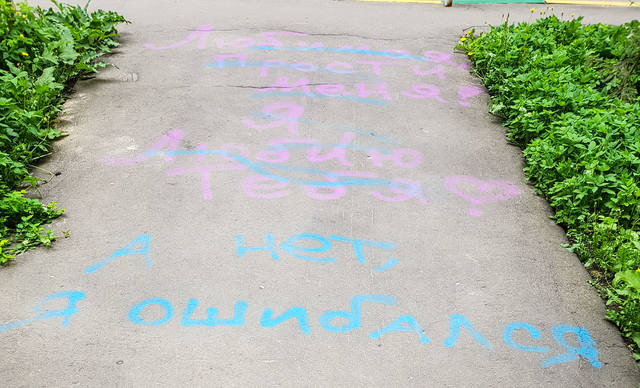 Любимая
прости
меня?
Я
Люблю
Тебя
А нет,
я ошибался